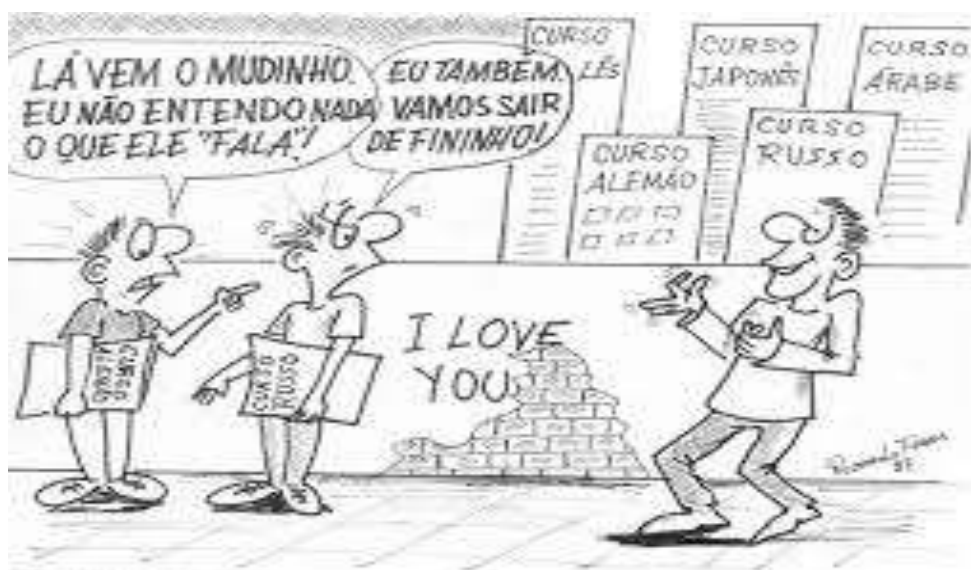 LÁ VEM O MUDINHO.
EU NÃO ENTENDO NADA
O QUE ELE "FALA"!
EU TAMBÉM.
VAMOS SAIR
DE FININHO!
CURSO
LÊS
CURSO
ALEMÃO
CURSO
JAPONÊS
CURSO
RUSSO
CURSO
ÁRABE
CURSO
ALEMÃO
CURSO
RUSSO
I LOVE
YOU